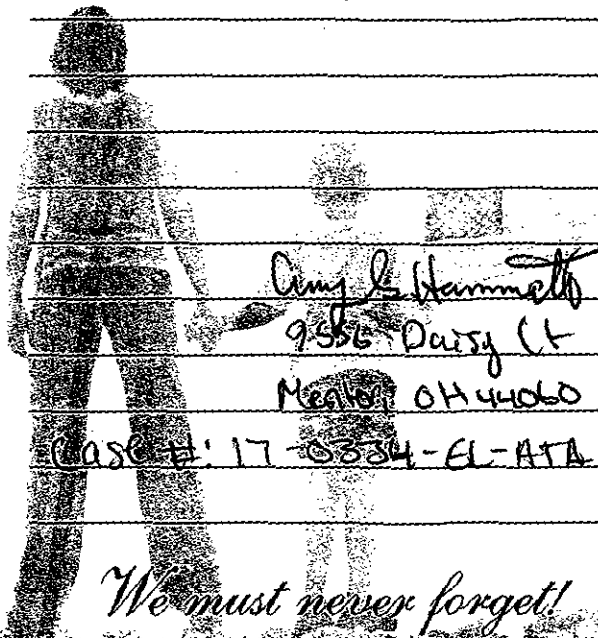 Amy G Hammett
Daisy Ct
Mentor, OH 44060
Case #: 17-0334-EL-ATA
We must never forget!